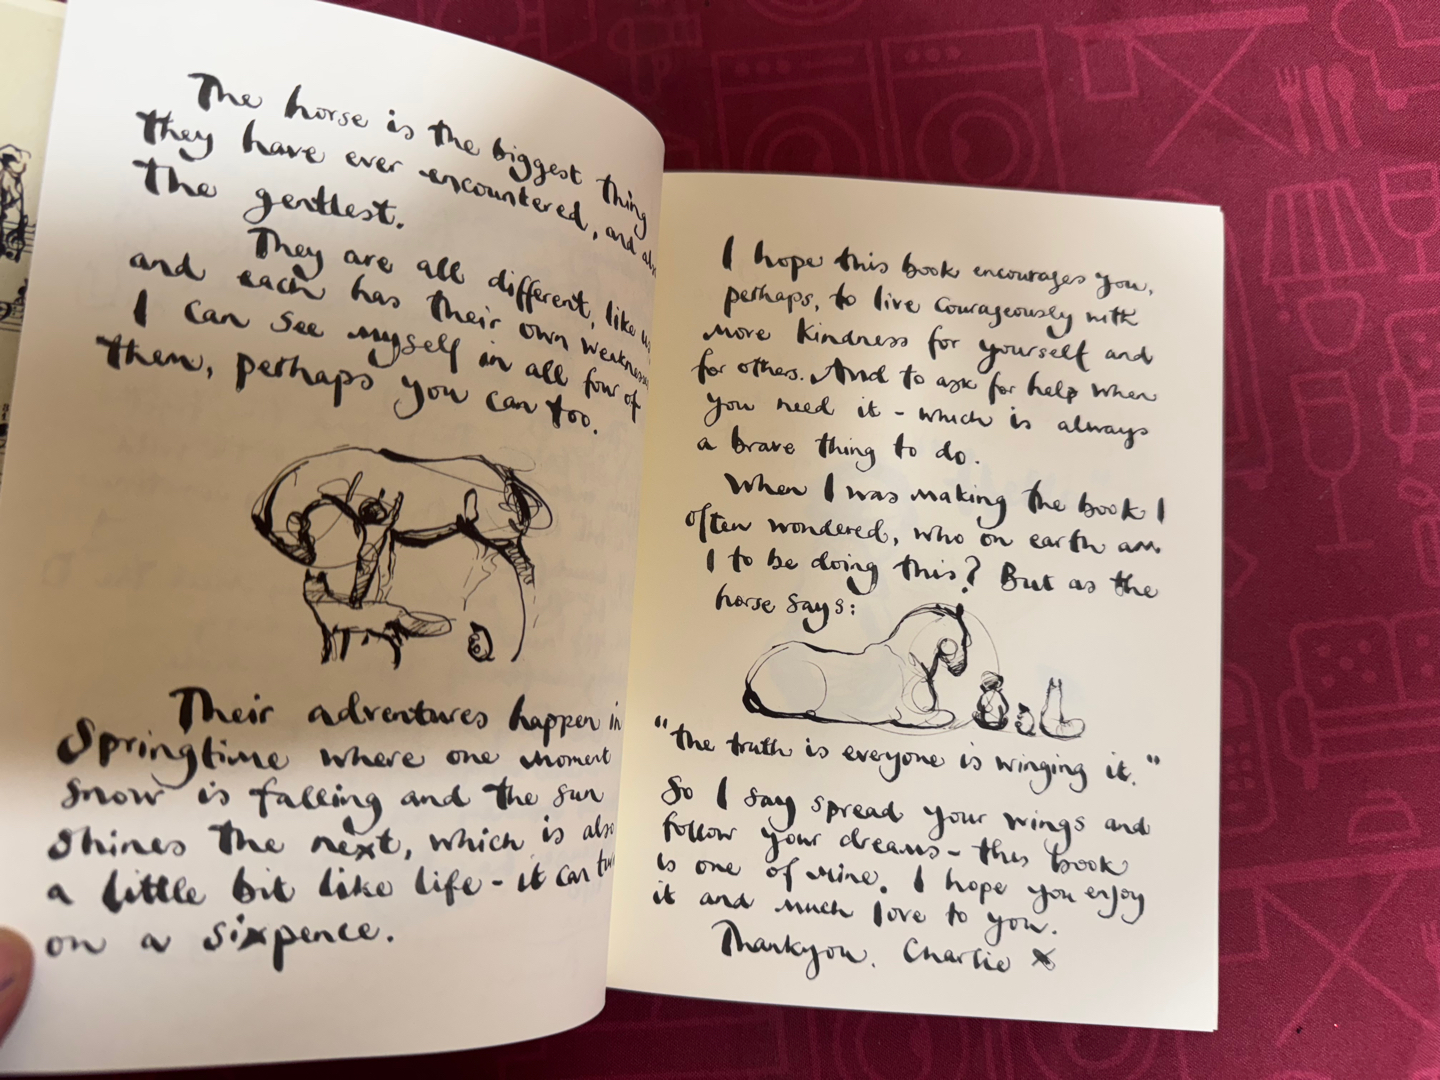 The horse is the biggest thing
they have ever encountered, and also
the gentlest.
They are all different, like us
and each has their own weakness
I can see myself in all four of
them, perhaps you can too.
Their adventures happen in
Springtime where one moment
snow is falling and the sun
shines the next, which is also
a little bit like life - it can
on a sixpence.
I hope this book encourages you,
perhaps, to live courageously with
more kindness for yourself and
for others. And to ask for help when
you need it - which is always
a brave thing to do.
When I was making the book I
often wondered, who on earth am
I to be doing this? But as the
horse says:
"the truth is everyone is winging it."
So I say spread your wings and
follow your dreams - this book
is one of mine. I hope you enjoy
it and much love to you.
Thankyou. Charlie x